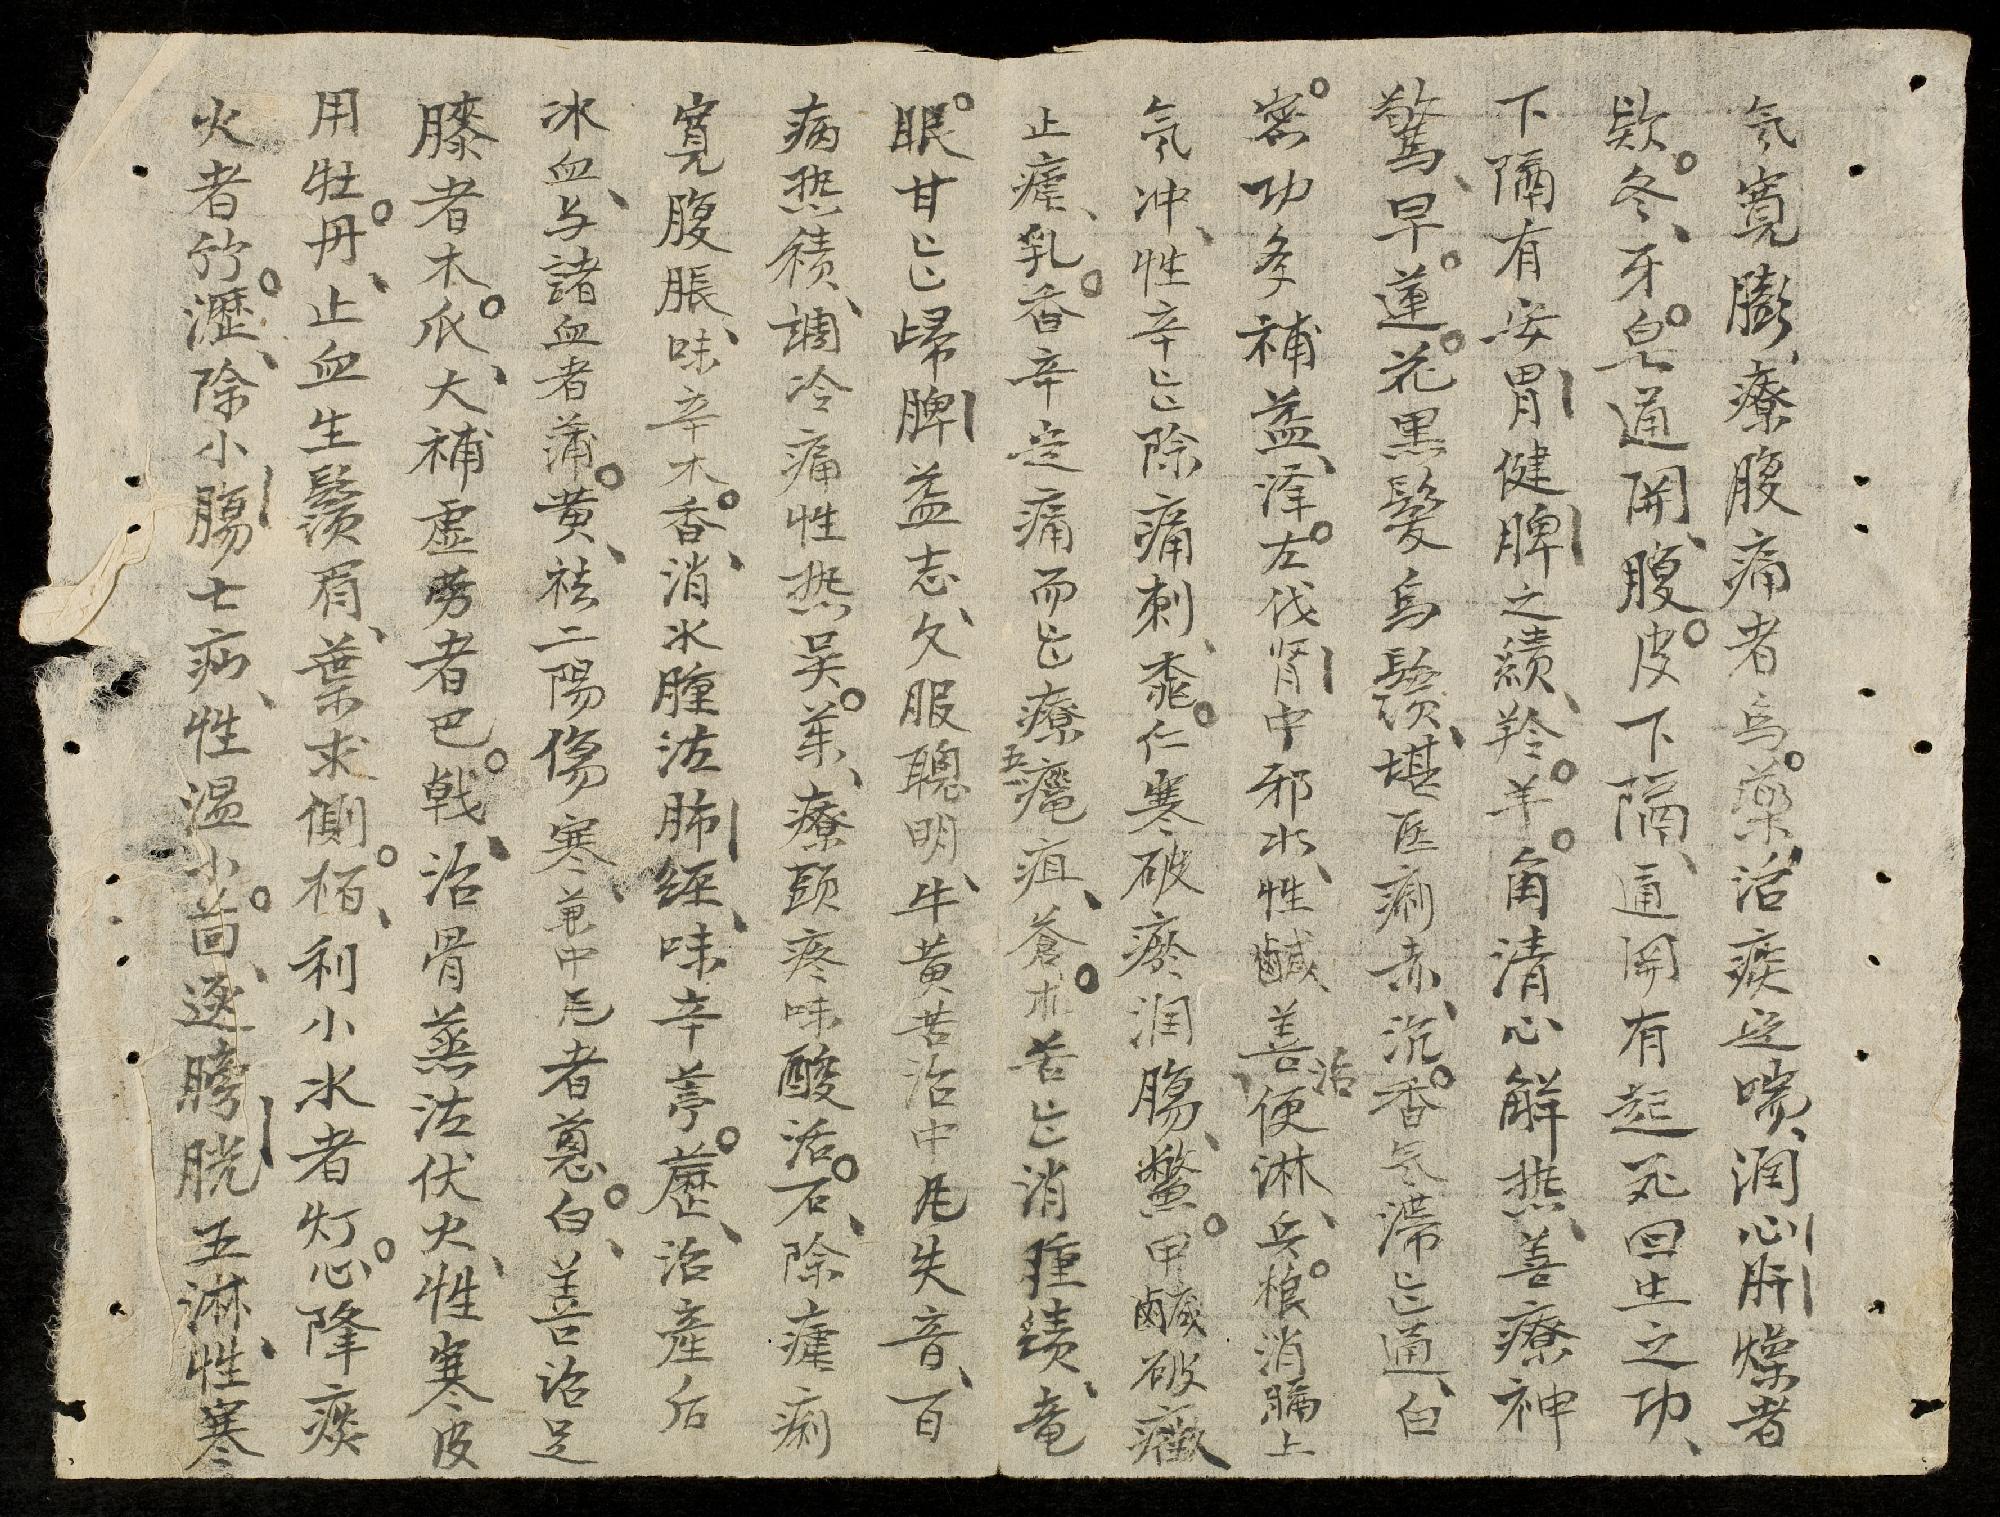 气寬膨、療腹痛者烏藥、治痰定喘、润心肝燥者
欵冬、牙皂通開、腹皮下隔、通関有起死回生之功、
下隔有安胃健脾之績、羚羊角清心解热、善療神
驚、旱蓮花黒髮烏鬚、堪医痢赤、沉香气滞亡通、白
密功多補益、澤左伐肾中邪水、性鹹善治便淋、兵榔消膈上
気冲、性辛亡除痛刺、桃仁寒破瘀润腸、鱉甲鹹破癥
止瘧、乳香辛定痛而亡療五癰疽、蒼术苦亡消腫績、竜
眼甘亡歸脾益志、久服聰明、牛黄苦治中風失音、百
病热積、調冷痛性热吴茱、療頭疼味酸活石、除瘧痢
寛腹脹、味辛木香、消水腫沽肺經、味辛葶藶、治産后
冰血、与諸血者蒲黄、祛二陽傷寒、兼中風者蔥白、善治足
膝者木瓜、大補虚劳者巴戟、治骨蒸沽伏火、性寒皮
用牡丹、止血生鬚眉、葉求側栢、利小水者灯心降痰
火者竹瀝、除小腸七疝、性温小茴、逐膀胱五淋、性寒